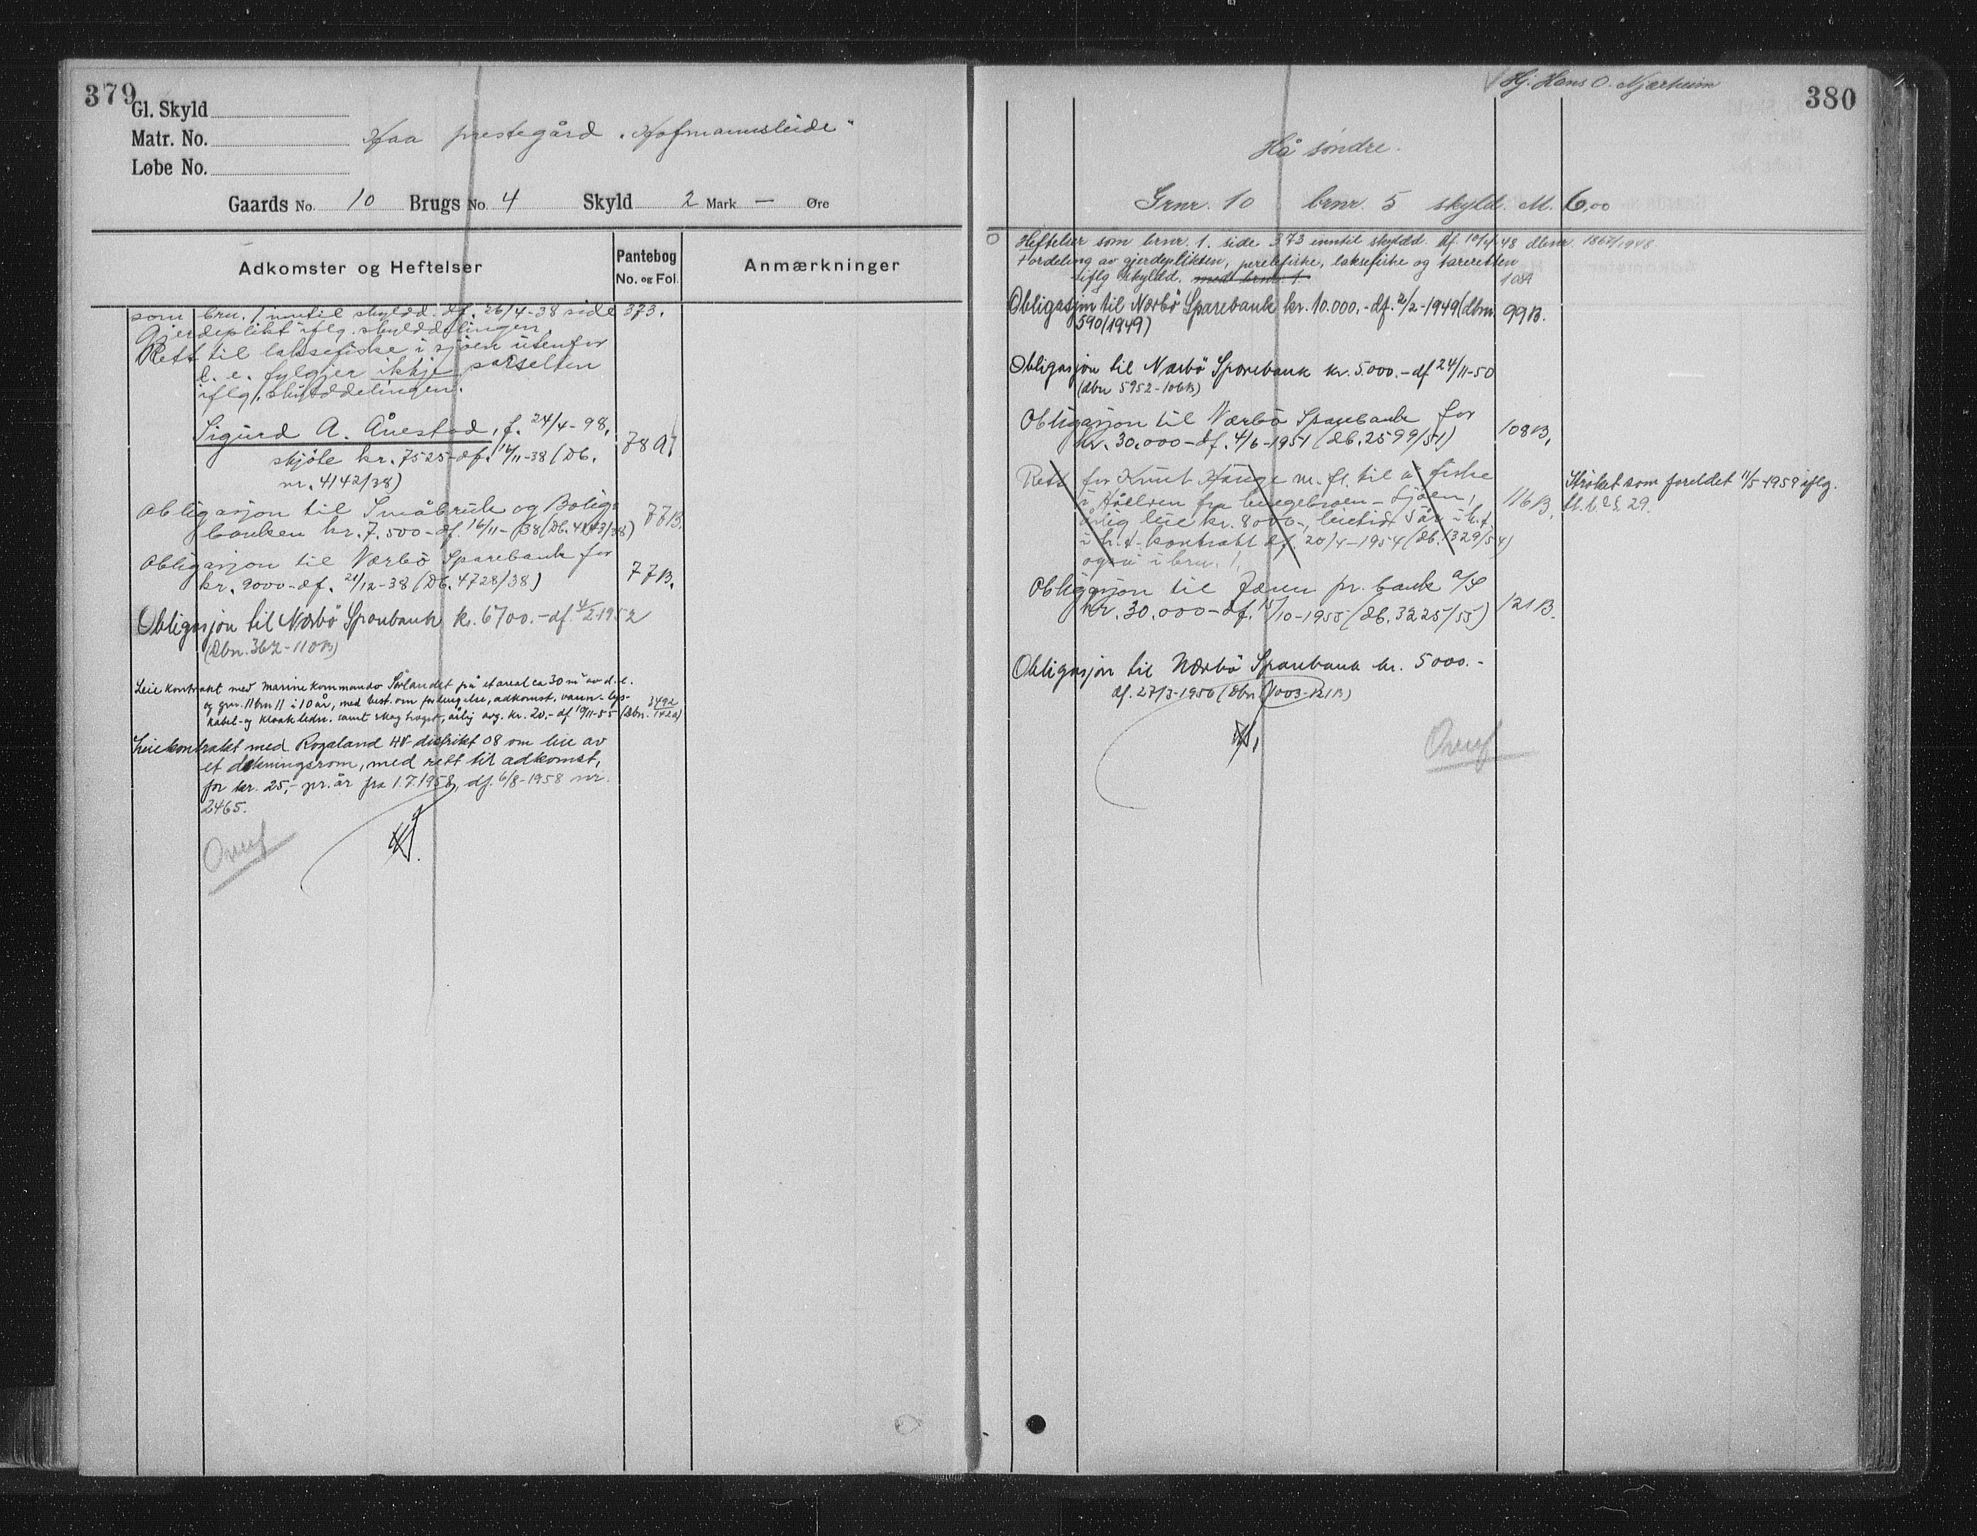 379
Gl. Skyld
Matr. No.
Løbe No.
Haa prestegård "Hofmannsleide"
Gaards No. 10 Brugs No. 4 Skyld 2 Mark — Øre
Adkomster og Heftelser
Pantebog
No. og Fol.
Anmærkninger
som bru. 1 inntil skyldd. df. 26/4-38 side 373.
Gjerdeplikt iflg. skylddelingen.
Rett til laksefiske i sjøen utenfor
d. e. fylgjer ikkje parsellen
iflg. skylddelingen.
Sigurd A. Ånestad, f. 24/4-98,
skjøte kr. 7525 - df. 16/11-38 (Db. 78A,
nr. 4142/38)
Obligasjon til Småbruk og Bolig-
banken kr. 7.500 - df. 16/11-38 (Db. 4143/38) 77B
Obligasjon til Nærbø Sparebank for
kr. 9000 - df. 21/12-38 (Db. 4728/38) 77B.
Obligasjon til Nærbø Sparebank kr. 6700.- df. 4/2 1952
(Dbn. 367 - 110B)
Leiekontrakt med Marinekommando Sørlandet på et areal ca 30 m² av d. e.
og gnr. 11 bn 11 i 10 år, med best. om forlengelse, adkomst, vann- lys-
kabel- og kloakledn. samt skag hoget, årlig avg. kr. 20,- df 19/11-55 (Dbn. 3492/142a)
Leiekontrakt med Rogaland HV-distrikt 08 om leie av
et dekningsrom, med rett til adkomst,
for kr. 25,- pr. år fra 1.7.1958, df. 6/8-1958 nr.
2465.
Overf
380
Hj. Hans O. Njærheim
Hå søndre.
Grnr. 10 brnr. 5 skyld. M. 6,00
Heftelser som brnr. 1. side 373 inntil skyldd. df. 10/4 48 dbnr. 1867/1948.
Fordeling av gjerdeplikten, perlefiske, laksefiske og tareretten
iflg skyldd. med brnr. 1
Obligasjon til Nærbø Sparebank kr. 10.000.- df. 2/2-1949 (dbnr. 99B.
590/1949)
Obligasjon til Nærbø Sparebank kr. 5.000.- df 24/11-50
(dbn 5952-106B)
Obligasjon til Nærbø Sparebank for
kr. 30.000 - df. 4/6-1951 (db. 2599/51) 108B,
Rett for Knut Hauge m. fl. til å fiske
i Håelven fra hengebroen - sjøen,
årlig leie kr. 8000-, leietid 5 år i h. t. 116B.
i h. t. kontrakt df. 20/4-1954 (db. 1329/54)
også i brn. 1,
Strøket som foreldet 11/5-1959 iflg.
tl. l. § 29.
Obligasjon til Jæren pr. bank A/S
kr. 30.000 - df. 15/10-1955 (db. 3225/55) 121B.
Obligasjon til Nærbø Sparebank kr. 5000.-
df. 27/3-1956 (dbn 1003-121B)
Overf